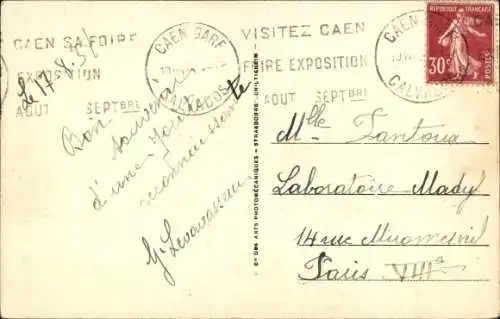 CAEN SA FOIRE
EXPOSITION
AOUT SEPTBRE
CAEN GARE
CALVADOS
VISITEZ CAEN
FOIRE EXPOSITION
AOUT SEPTBRE
CAEN
CALVADOS
REPUBLIQUE FRANCAISE
30c
POSTES
Le 17.8.35
Bon souvenir
d'une Joies
reconnaissante
G. Levavasseur
Ets DES ARTS PHOTOMÉCANIQUES - STRASBOURG-SCHILTIGHEIM
Mlle Fantoux
Laboratoire Mady
14 rue Miromesnil
Paris VIIIe